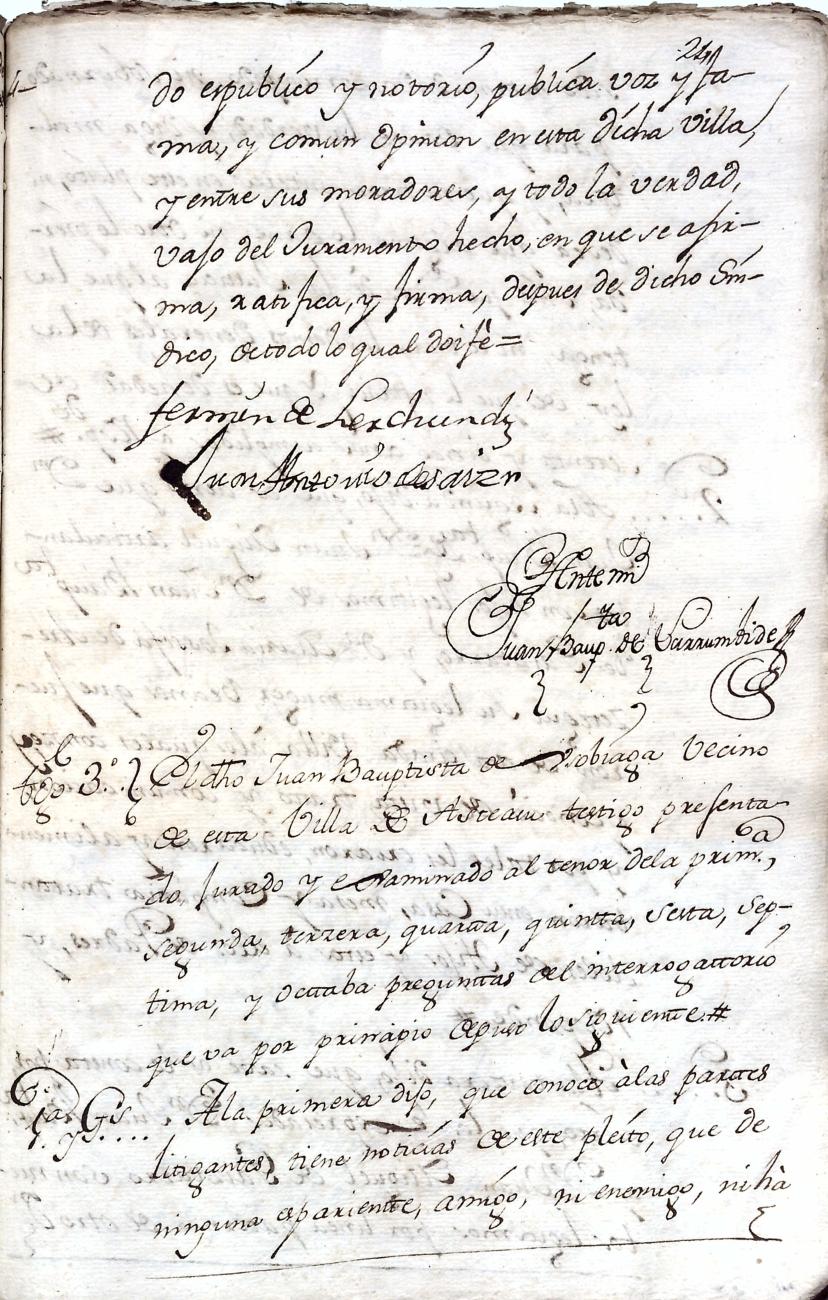 24
do es publico y notorio, publica voz y fa-
ma, y comun opinion en esta dicha villa,
y entre sus moradores, y todo la verdad,
vajo del Juramento hecho, en que se afir-
ma, ratifica, y firma, despues de dicho Sin-
dico, de todo lo qual doi fê =
fermin de Lerchundi
Juan Antonio de
Ante mi
Juan Baup.ta de Larrumbide
tgo 3.º
El dho Juan Bauptista de vecino
de esta Villa de Asteasu testigo presenta-
do, Jurado y examinado al tenor dela prim.a,
segunda, terzera, quarta, quinta, sesta, sep-
tima, y octtaba preguntas del interrogattorio
que va por prinzipio depuso lo siguiente #
1.a y Gs....
A la primera dijo, que conoce à las parttes
litigantes, tiene noticias de este pleito, que de
ninguna es pariente, amigo, ni enemigo, ni hà